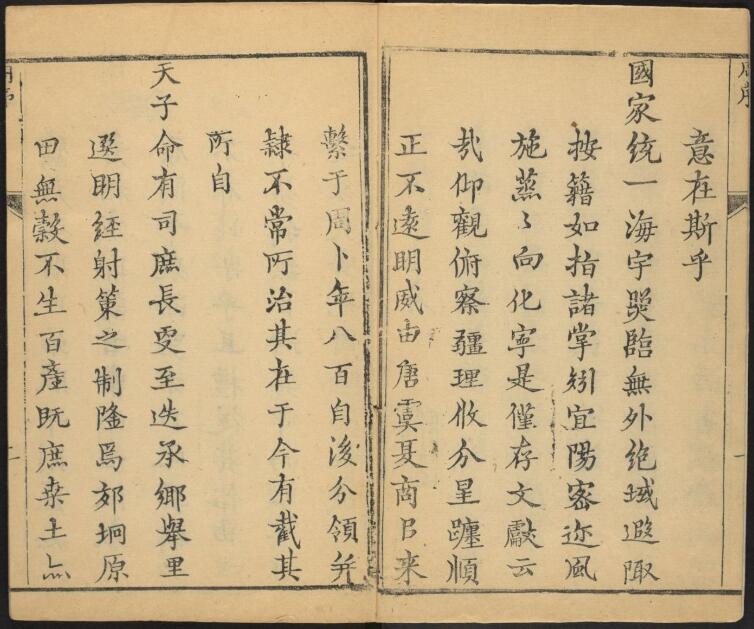 意在斯乎
國家統一海宇奠臨無外絶域遐陬
按籍如指諸掌矧宜陽密迩風
施蒸〻向化寧是僅存文獻云
㢤仰觀俯察疆理攸分星躔順
正不遠明威由唐虞夏商㠯来
繫于周卜年八百自後分領并
隸不常所治其在于今有截其
所自
天子命有司庶長叓至迭承鄉舉里
選明經射策之制隆焉郊坰原
田無穀不生百產既庶桒土